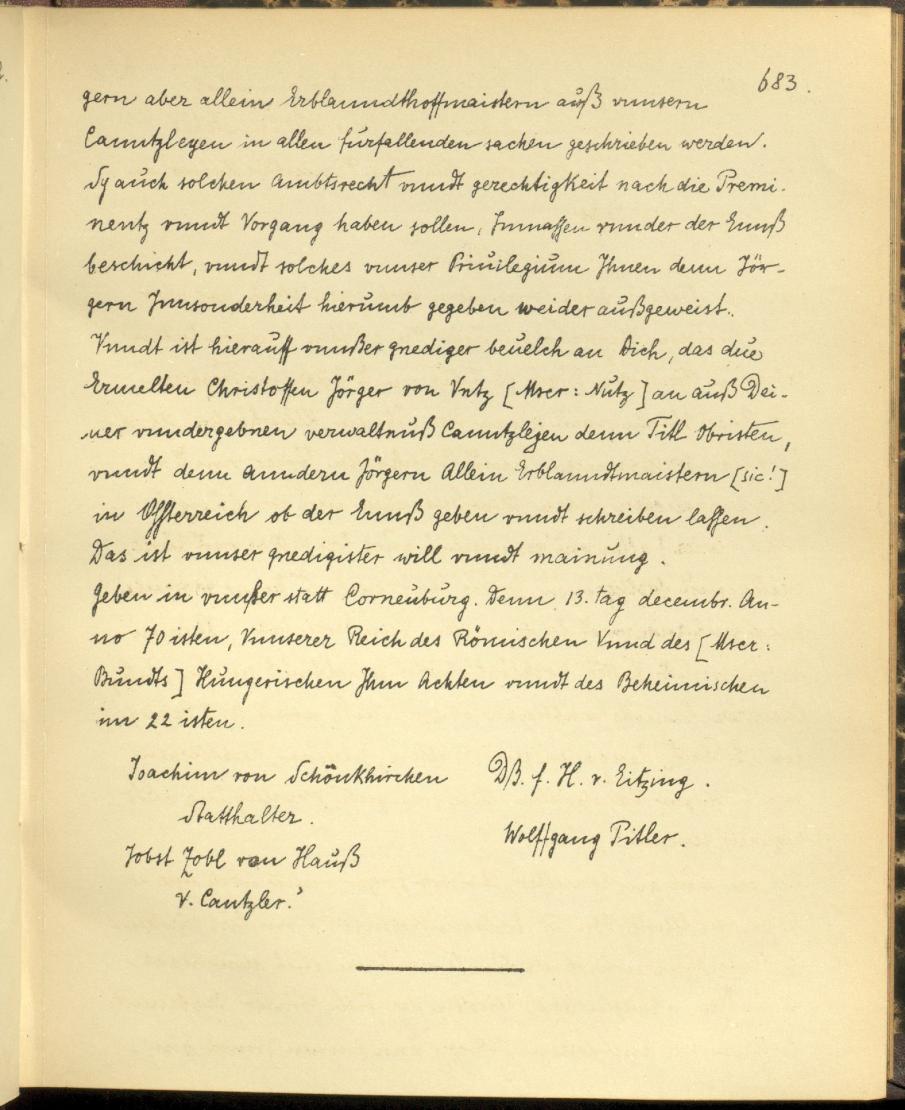 683.
gern aber allein Erblanndthoffmaistern auß vnnsern
Canntzleyen in allen fürfallenden sachen geschrieben werden.
Sy auch solchen Ambtsrecht vnndt gerechtigkeit nach die Premi-
nentz vnndt Vorgang haben sollen, Inmassen vnnder der Ennß
beschicht, vnndt solches vnnser Priuilegium Ihnen denn Jör-
gern Innsonderheit hierumb gegeben weider außgeweist.
Vnndt ist hierauff vnnßer gnediger beuelch an Dich, das due
Ermelten Christoffen Jörger von Vntz [Mscr: Nutz] an auß Dei-
ner vnndergebnen verwaltnuß Canntzlejen denn Titl Obristen,
vnndt denn Anndern Jörgern Allein Erblanndtmaistern [sic!]
in Össterreich ob der Ennß geben vnndt schreiben lassen.
Das ist vnnser gnedigister will vnndt mainung.
Geben in vnnßer statt Corneuburg. Denn 13. tag decembr. An-
no 70 isten, Vnnserer Reich des Römischen Vnnd des [Mscr:
Bundts] Hungerischen Ihm Achten vnndt des Beheimischen
im 22 isten.
Joachim von Schönkhirchen
Statthalter.
Jobst Zobl von Hauß
V. Cantzler.
DB. f. H. v. Eitzing.
Wolffgang Pitler.